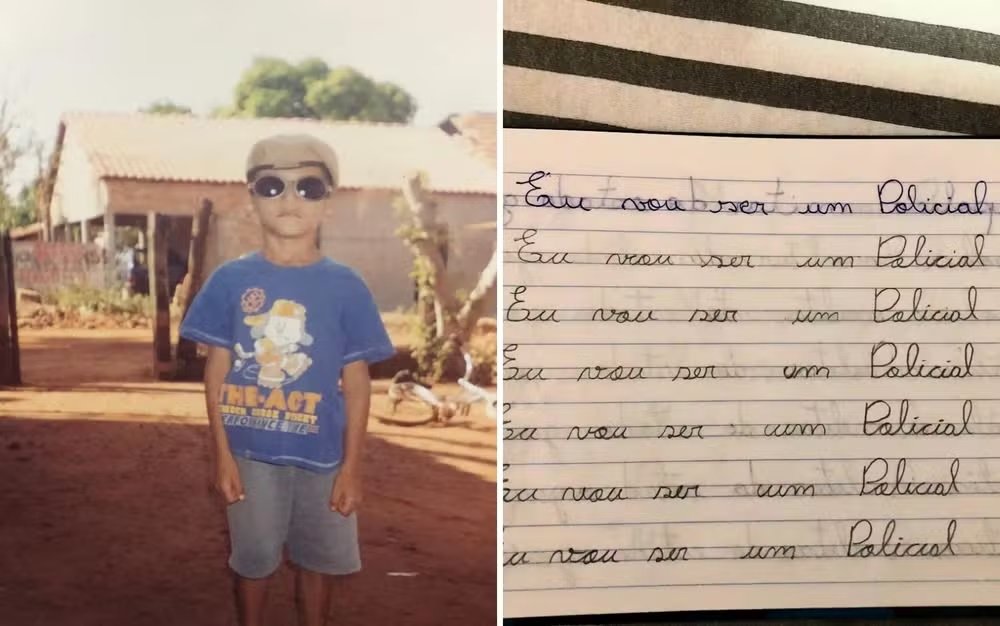 THE·ACT
Eu vou ser um Policial
Eu vou ser um Policial
Eu vou ser um Policial
Eu vou ser um Policial
Eu vou ser um Policial
Eu vou ser um Policial
u vou ser um Policial